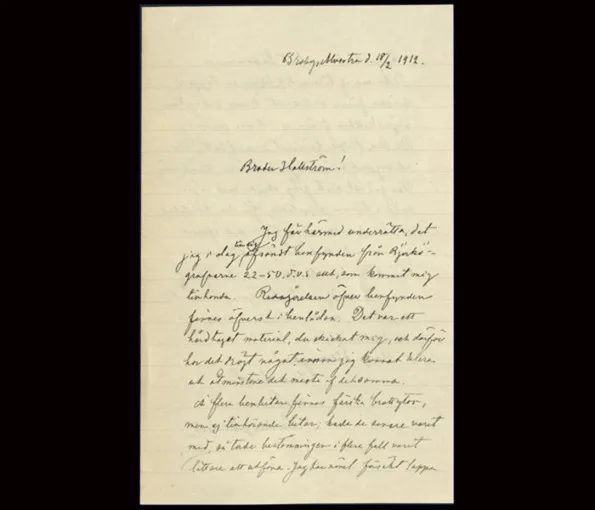 d. 18/2 1912.
Broder Hallström!
Jag får härmed underrätta, det
jag i dag afsändt benfynden från Björkö-
grafvarne 22-50, d.v.s. allt, som kommit mig
tillhanda. Redogörelsen öfver benfynden
finnes öfverst i benlådan. Det var ett
material, du skickat mig, och därför
har det dröjt något, innan jag kunnat
åtminstone det mesta af detsamma.
På flere benbitar finnas färska brottytor,
men ej tillhörande bitar; hade de senare varit
med, så torde bestämningen i flere fall varit
lättare att utföra. Jag har näml. försökt lappa